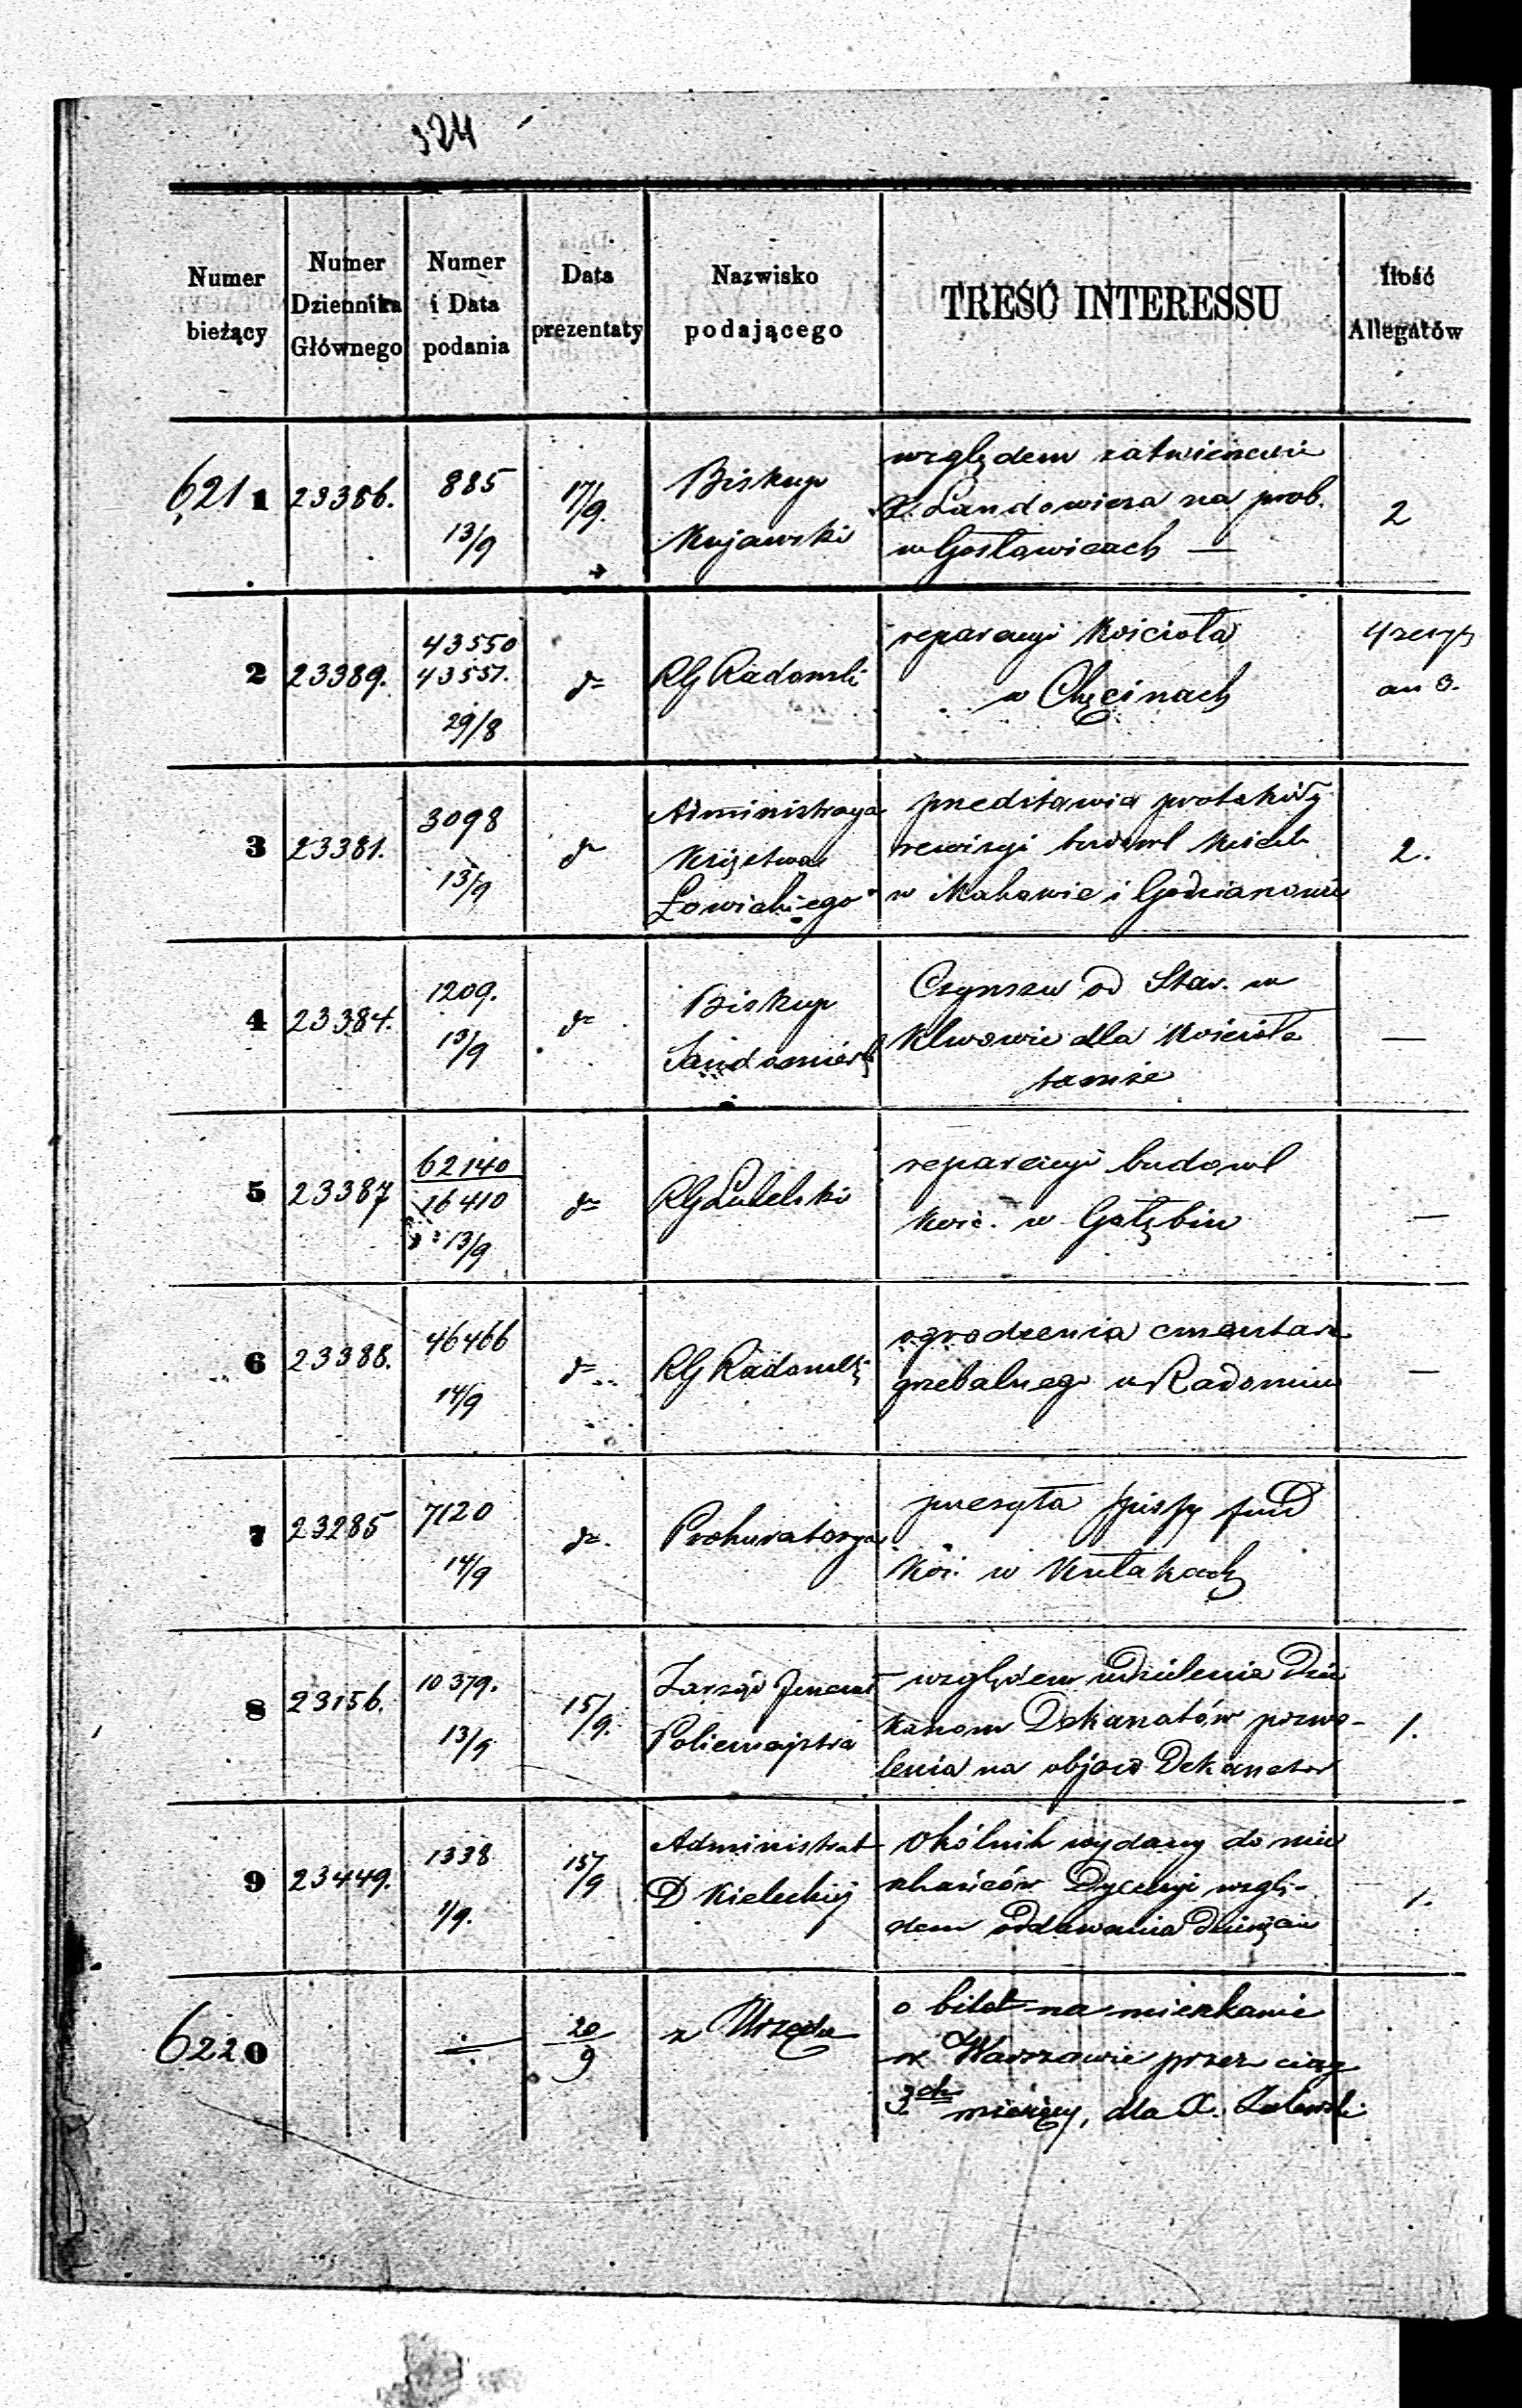 324
Numer bieżący | Numer Dziennika Głównego | Numer i Data podania | Data prezentaty | Nazwisko podającego | TREŚĆ INTERESSU | Ilość Allegatów
6211 | 23386. | 885 13/9 | 17/9. | Biskup Kujawski | względem zatwierdzenia X. Landowicza na prob. w Gosławicach — | 2
2 | 23389. | 43550 43557. 29/8 | dº | RG Radomski | reparacyi Kościoła w Chęcinach | 4
3 | 23381. | 3098 13/9 | dº | Administracya Księstwa Łowickiego | przedstawia protokóły rewizyi budowl Kościel w Makowie i Godzianowie | 2.
4 | 23384. | 1209. 13/9 | dº | Biskup Sandomierski | Czynszu od Star. w Klwowie dla Kościoła tamże | —
5 | 23387 | 62140 16410 13/9 | dº | RG Lubelski | reparacyi budowl Kość. w Gołębiu | —
6 | 23388. | 46466 14/9 | dº | RG Radomski | ogrodzenia cmentarz grzebalnego w Radomiu | —
7 | 23285 | 7120 14/9 | dº. | Prokuratorya | przesyła fund Koś. w
8 | 23156. | 10379. 13/9 | 15/9. | Zarząd Policmajstra | względem udzielenia Dzie kanom Dekanatów pozwo- lenia na objazd Dekanatów | 1.
9 | 23449. | 1338 1/9. | 15/9 | Administrat D Kieleckiej | Okólnik wydany do mie szkańców Dyecezyi wzglę- dem oddawania | 1.
6220 | — | 20/9 | z Urzędu | o bilet na mieszkanie w Warszawie przez ciąg 3ch miesięcy, dla X. Zalewski